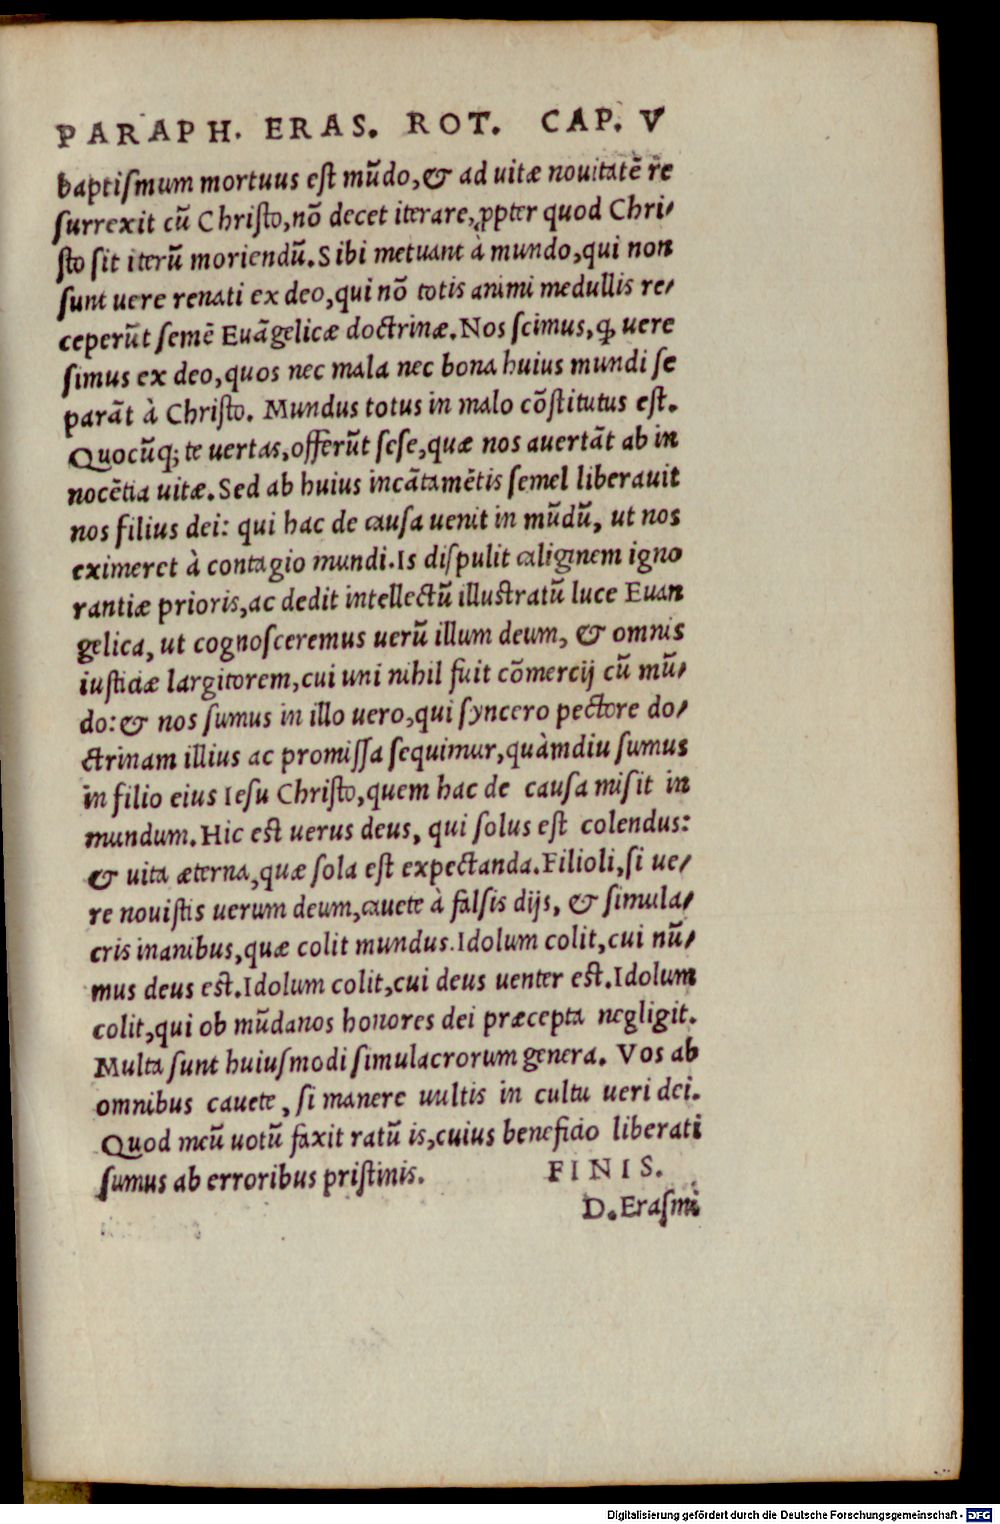 PARAPH. ERAS. ROT. CAP. V
baptiſmum mortuus eſt mũdo, & ad uitæ nouitatẽ re
ſurrexit cũ Chriſto, nõ decet iterare, ꝓpter quod Chri-
ſto ſit iterũ moriendũ. Sibi metuant à mundo, qui non
ſunt uere renati ex deo, qui nõ totis animi medullis re-
ceperũt ſemẽ Euãgelicæ doctrinæ. Nos ſcimus, ꝙ uere
ſimus ex deo, quos nec mala nec bona huius mundi ſe
parãt à Chriſto. Mundus totus in malo cõſtitutus eſt.
Quocũq; te uertas, offerũt ſeſe, quæ nos auertãt ab in
nocẽtia uitæ. Sed ab huius incãtamẽtis ſemel liberauit
nos filius dei: qui hac de cauſa uenit in mũdũ, ut nos
eximeret à contagio mundi. Is diſpulit caliginem igno
rantiæ prioris, ac dedit intellectũ illuſtratũ luce Euan
gelica, ut cognoſceremus uerũ illum deum, & omnis
iuſticiæ largitorem, cui uni nihil fuit cõmercij cũ mũ-
do: & nos ſumus in illo uero, qui ſyncero pectore do-
ctrinam illius ac promiſſa ſequimur, quàmdiu ſumus
in filio eius Ieſu Chriſto, quem hac de cauſa miſit in
mundum. Hic eſt uerus deus, qui ſolus eſt colendus:
& uita æterna, quæ ſola eſt expectanda. Filioli, ſi ue-
re nouiſtis uerum deum, cauete à falſis dijs, & ſimula-
cris inanibus, quæ colit mundus. Idolum colit, cui nũ-
mus deus eſt. Idolum colit, cui deus uenter eſt. Idolum
colit, qui ob mũdanos honores dei præcepta negligit.
Multa ſunt huiuſmodi ſimulacrorum genera. Vos ab
omnibus cauete, ſi manere uultis in cultu ueri dei.
Quod meũ uotũ faxit ratũ is, cuius beneficio liberati
ſumus ab erroribus priſtinis. FINIS.
D. Eraſmi
Digitalisierung gefördert durch die Deutsche Forschungsgemeinschaft - DFG